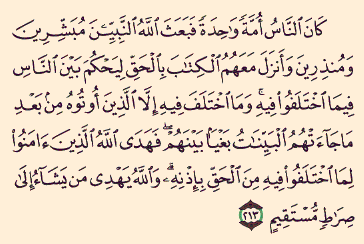 كَانَ ٱلنَّاسُ أُمَّةً وَٰحِدَةً فَبَعَثَ ٱللَّهُ ٱلنَّبِيِّـۧنَ مُبَشِّرِينَ
وَمُنذِرِينَ وَأَنزَلَ مَعَهُمُ ٱلْكِتَٰبَ بِٱلْحَقِّ لِيَحْكُمَ بَيْنَ ٱلنَّاسِ
فِيمَا ٱخْتَلَفُوا۟ فِيهِ ۚ وَمَا ٱخْتَلَفَ فِيهِ إِلَّا ٱلَّذِينَ أُوتُوهُ مِنۢ بَعْدِ
مَا جَآءَتْهُمُ ٱلْبَيِّنَٰتُ بَغْيًۢا بَيْنَهُمْ ۖ فَهَدَى ٱللَّهُ ٱلَّذِينَ ءَامَنُوا۟
لِمَا ٱخْتَلَفُوا۟ فِيهِ مِنَ ٱلْحَقِّ بِإِذْنِهِۦ ۗ وَٱللَّهُ يَهْدِى مَن يَشَآءُ إِلَىٰ
صِرَٰطٍ مُّسْتَقِيمٍ ٢١٣